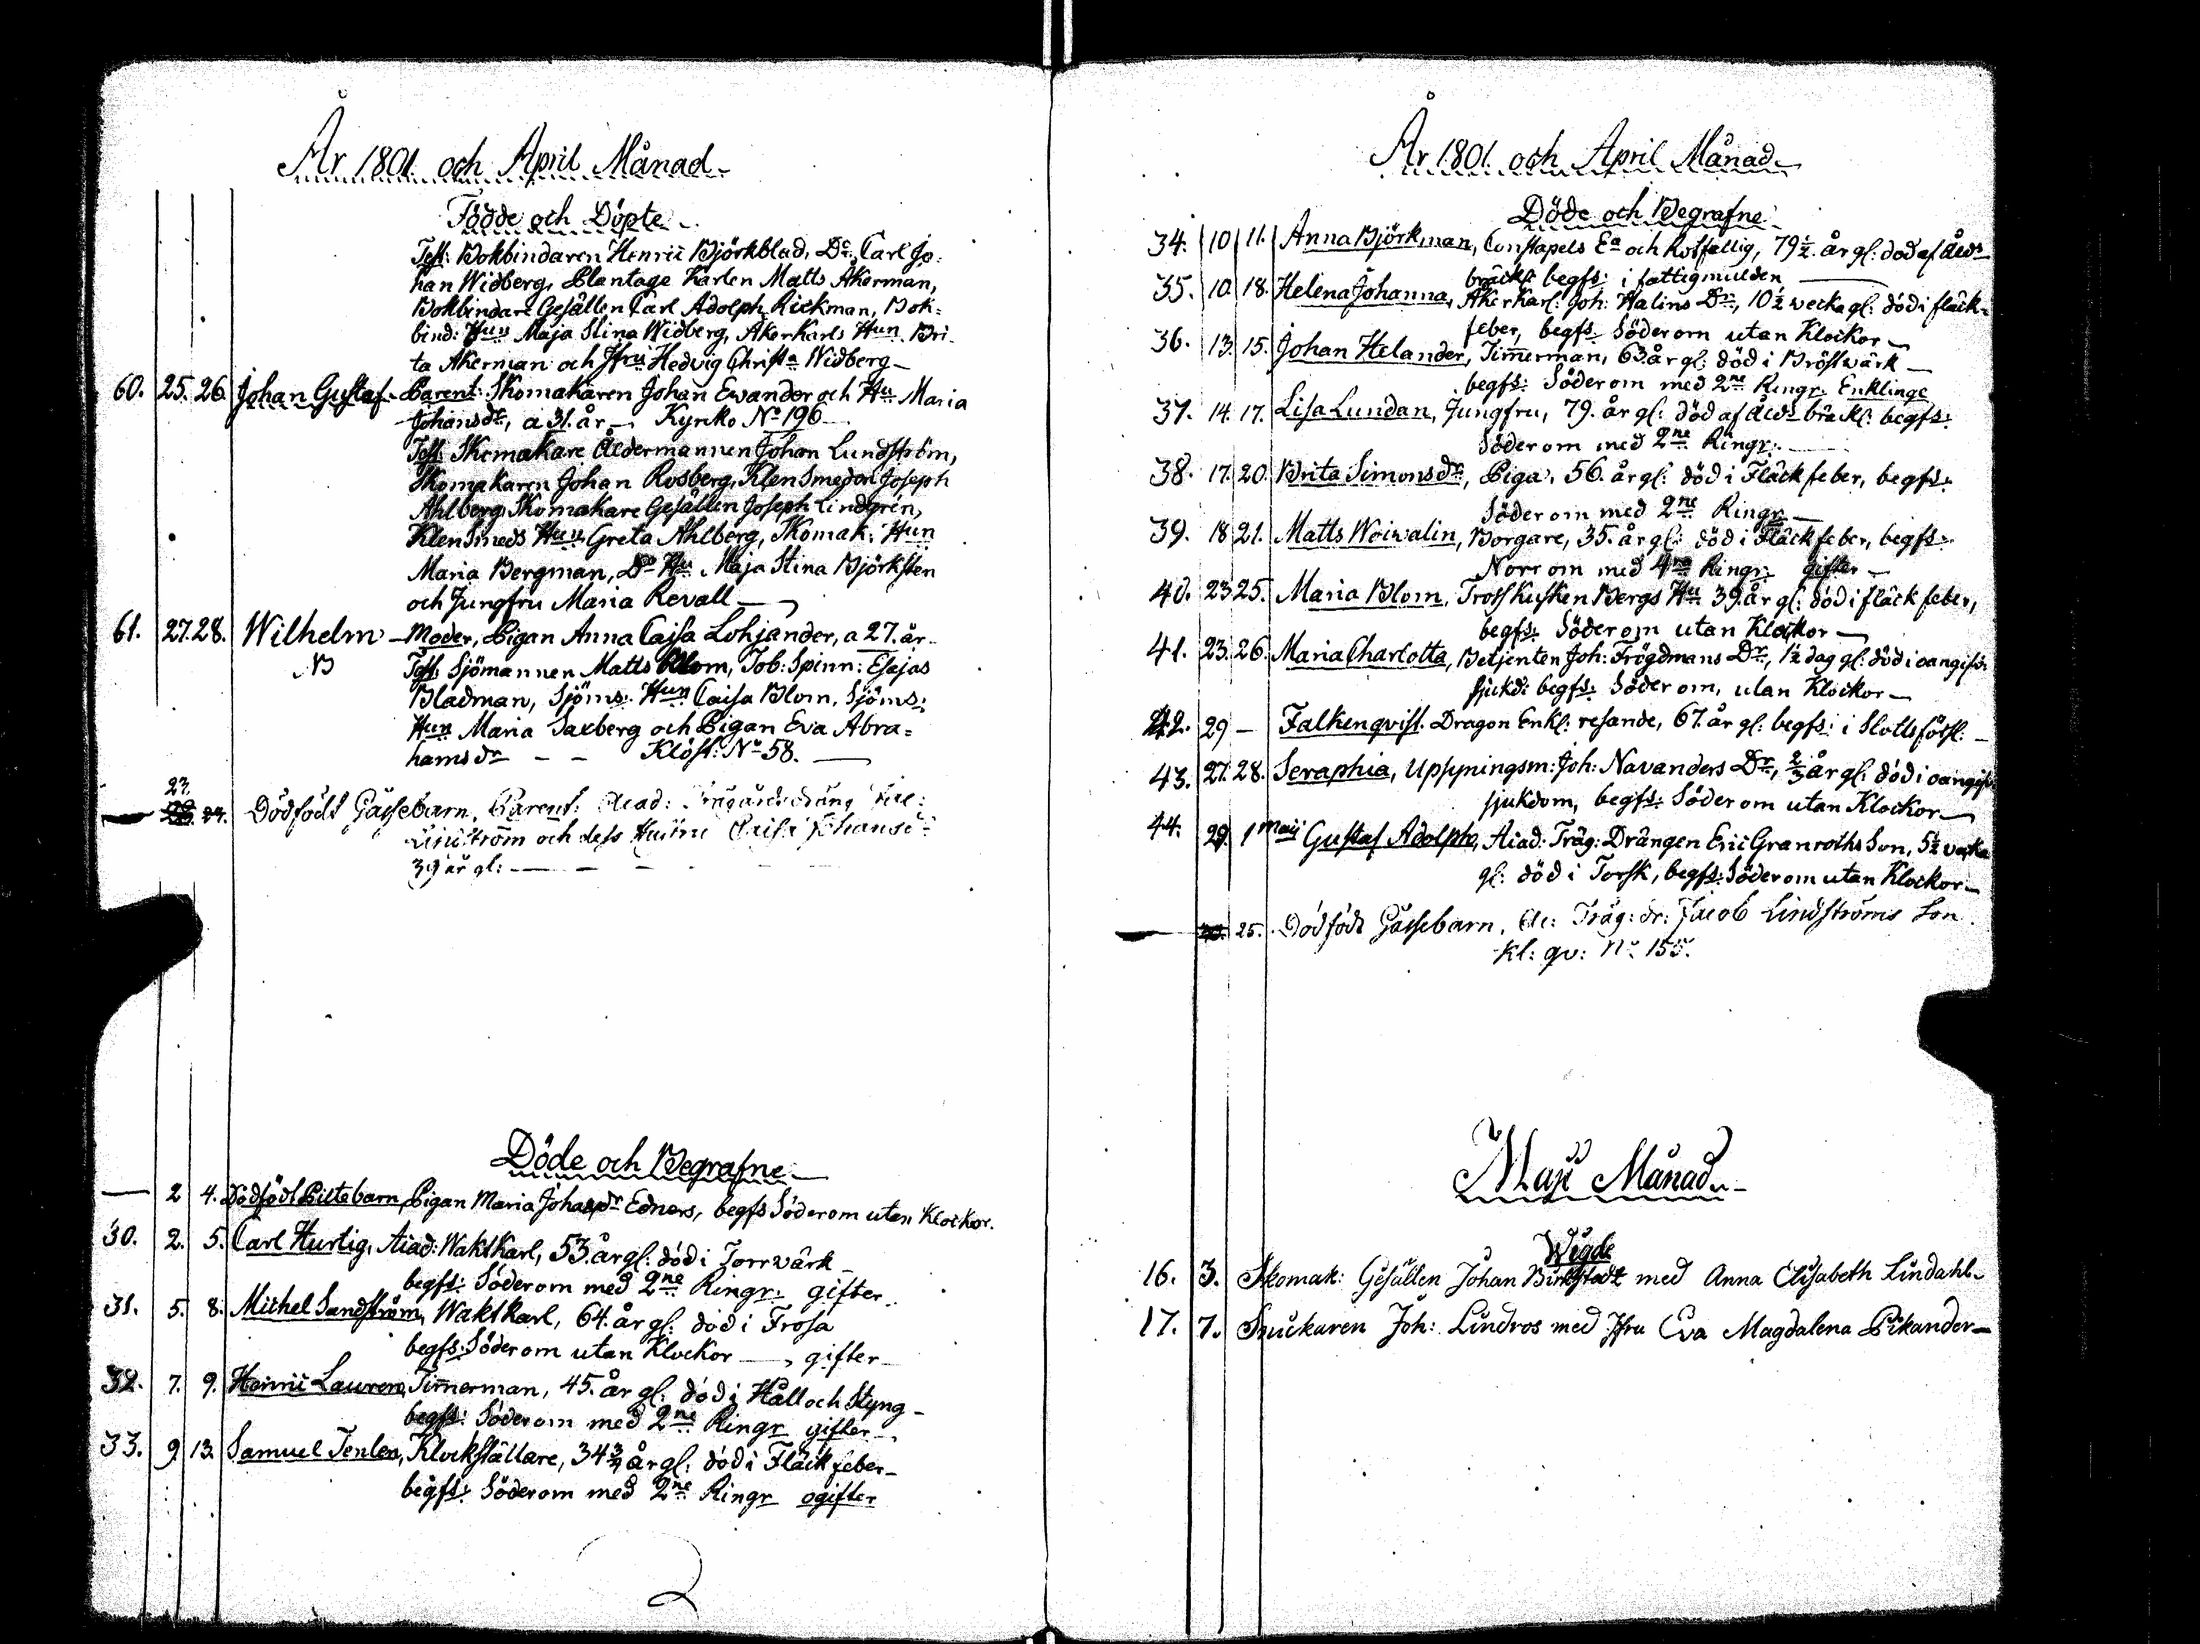 År 1801. och April Månad
Födde och Döpte
Test: Bokbindaren Henric Björkblad, Do Carl Jo:
han Widberg, Plantage Karlen Matts Åkerman,
Bokbindare Gesällen Carl Adolph Rickman, Bok:
bind: Hun Maja Stina Widberg, Åkerkarls Hun Bri
ta Åkerman och Jfru Hedvig Christa Widberg
60. 25. 26. Johan Gustaf. Parent: Skomakaren Johan Ewander och Hu Maria
Johansdr, a 31. år Kyrko No 196
Test: Skomakare Åldermannen Johan Lundström,
Skomakaren Johan Rosberg, Klensmeden Joseph
Ahlberg, Skomakare Gesällen Joseph Lindgrén,
Klensmeds Hun Greta Ahlberg, Skomak: Hun
Maria Bergman, Do Hu Maja Stina Björksten
och Jungfru Maria Revall
61. 27. 28. Wilhelm Moder, Pigan Anna Cajsa Lohjander, a 27. år
NB Test: Sjömannen Matts Blom, Tob: Spinn: Esajas
Bladman, Sjöms: Hun Caisa Blom, Sjöms:
Hun Maria Saxberg och Pigan Eva Abra=
hamsdr Klöst: No 58.
23.
Dödfödt Gåssebarn, Parent: Acad:
Lindström och dess Hustru Caisa Johansdr
39 år gl:
Döde och Begrafne
2 4. Dödfödt Piltebarn, Pigan Maria Johansdr Edners, begfs Söder om utan Klockor.
30. 2. 5. Carl Hurtig, Acad: Waktkarl, 53. år gl: död i Torrvärk
begfs: Söder om med 2ne Ringr: gifter
31. 5. 8. Michel Sandström, Waktkarl, 64. år gl: död i Frosa
begfs: Söder om utan Klockor gifter
32. 7. 9. Henric Lauren, Timerman, 45. år gl: död i Håll och Styng
begfs: Söder om med 2ne Ringr gifter
33. 9. 13. Samuel Tenlen, Klockställare, 34 3/4 år gl: död i Fläckfeber
begfs: Söder om med 2ne Ringr ogifter
År 1801. och April Månad
Döde och Begrafne
34. 10 11. Anna Björkman, Constapels Ea och Rotfallig, 79 1/2. år gl: död af Åldr
bräckl: begfs: i fattigmulden
35. 10. 18. Helena Johanna, Åkerkarl: Joh: Halins Dr, 10 1/2 wecka gl: död i fläck=
feber, begfs: Söder om utan Klockor
36. 13. 15. Johan Helander, Timerman, 63. år gl: död i Bröstwärk
begfs: Söder om med 2ne Ringr. Enklinge
37. 14. 17. Lisa Lundan, Jungfru, 79. år gl: död af Åldr bräckl: begfs:
Söder om med 2ne Ringr:
38. 17. 20. Brita Simonsdr, Piga, 56. år gl: död i Fläckfeber, begfs:
Söder om med 2ne Ringr
39. 18 21. Matts Woiwalin, Borgare, 35. år gl: död i Fläckfeber, begfs:
Norr om med 4ra Ringr: gifter
40. 23 25. Maria Blom, Trosskusken Bergs Hu 39. år gl: död i fläckfeber,
begfs: Söder om utan Klockor
41. 23. 26. Maria Charlotta, Betjenten Joh: Frögdmans Dr, 1 1/2 dag gl: död i oangifv:
sjukd: begfs: Söder om, utan Klockor
42. 29 — Falkenqvist Dragon Enkl: resande, 67. år gl: begfs: i Slottsförst:
43. 27. 28. Seraphia, Uppsyningsm: Joh: Navanders Dr, 2/3 år gl: död i oangifv:
sjukdom, begfs: Söder om utan Klockor
44. 29. 1 Maij Gustaf Adolph, Acad: Träg: Drängen Eric Granroths Son, 5 1/2 vecka
gl: död i Torsk, begfs: Söder om utan Klockor
25. Dödfödt Gåssebarn, Ac: Träg: dr: Jacob Lindströms Son
Kl: qv: No 155.
Maji Månad
Wigde
16. 3. Skomak: Gesällen Johan Birkstedt med Anna Elisabeth Lindahl
17. 7. Snickaren Joh: Lindros med Jfru Eva Magdalena Pikander
2